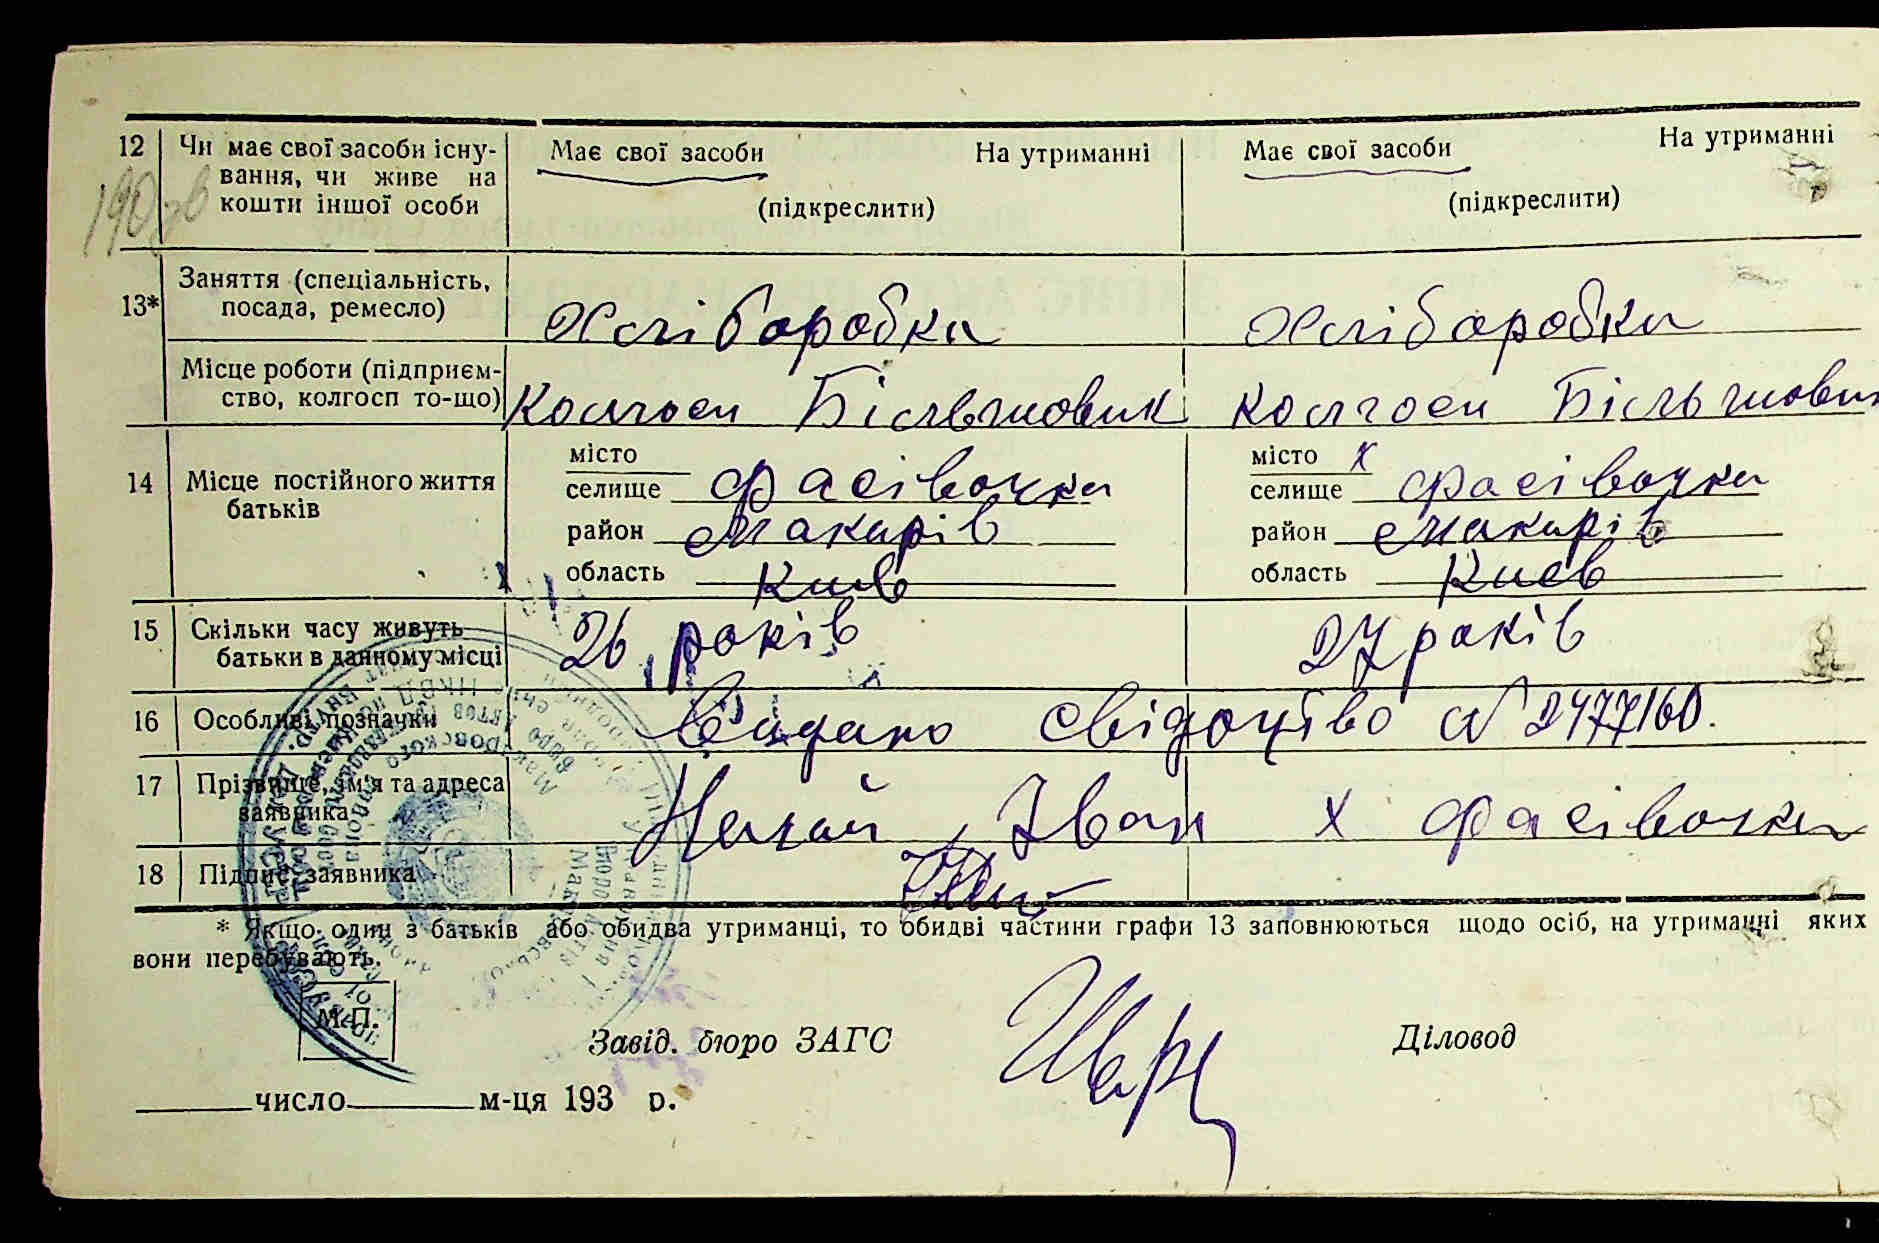 12 Чи має свої засоби існу- Має свої засоби На утриманні Має свої засоби На утриманні
вання, чи живе на
кошти іншої особи (підкреслити) (підкреслити)
13* Заняття (спеціальність,
посада, ремесло) Хліборобка Хлібороб
Місце роботи (підприєм-
ство, колгосп то-що) Колгосп Більшовик Колгосп Більшовик
14 Місце постійного життя
батьків
місто місто х
селище Фасівочка селище Фасівочка
район Макарів район Макарів
область Київ область Киев
15 Скільки часу живуть
батьки в данному місці 26 років 27 років
16 Особливі позначки Видано свідоцтво N 2477160.
17 Прізвище, ім'я та адреса
заявника Іван х Фасівочка
18 Підпис заявника
* Якщо один з батьків або обидва утриманці, то обидві частини графи 13 заповнюються щодо осіб, на утриманні яких
вони перебувають.
М.П.
Завід. бюро ЗАГС Діловод
число м-ця 193 р.